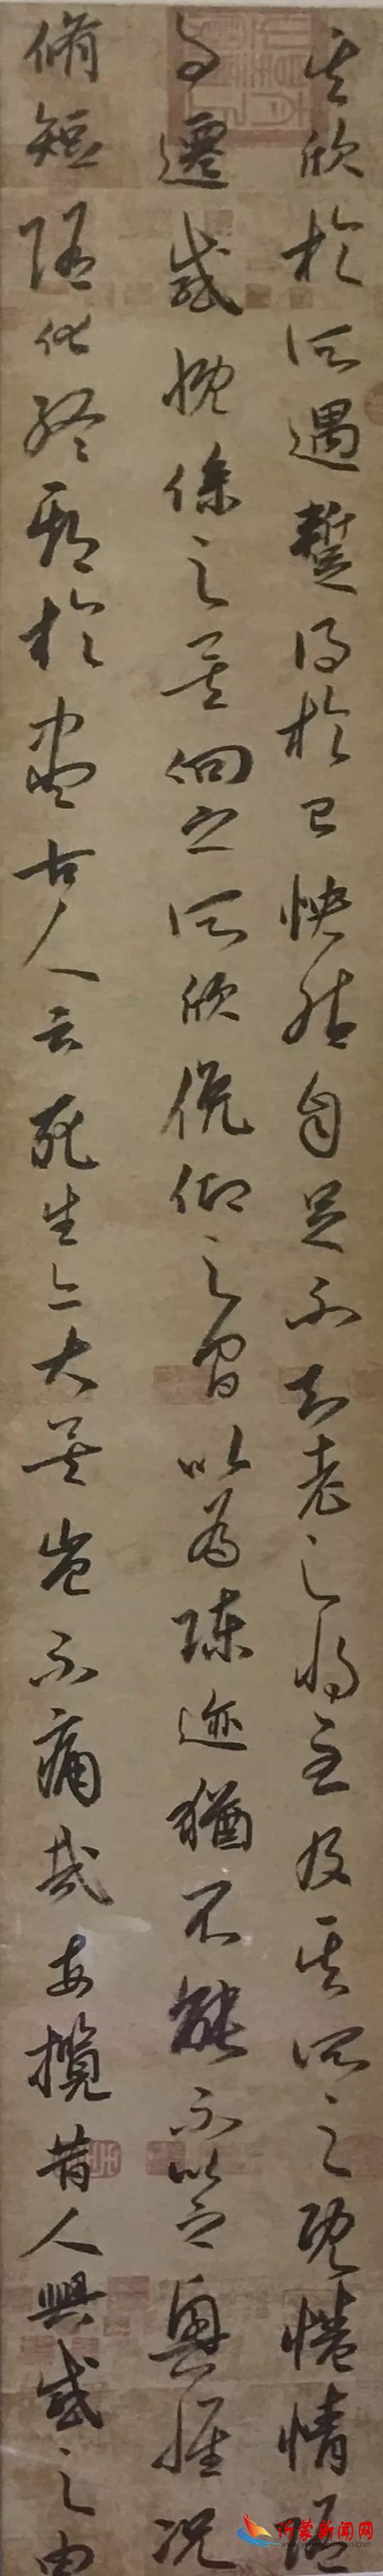 其欣於所遇暫得於己怏然自足不知老之將至及其所之既惓情隨
事遷感慨係之矣向之所欣俛仰之間以為陳迹猶不能不以之興懷況
脩短隨化終期於盡古人云死生亦大矣豈不痛哉每攬昔人興感之由
沂蒙新闻网